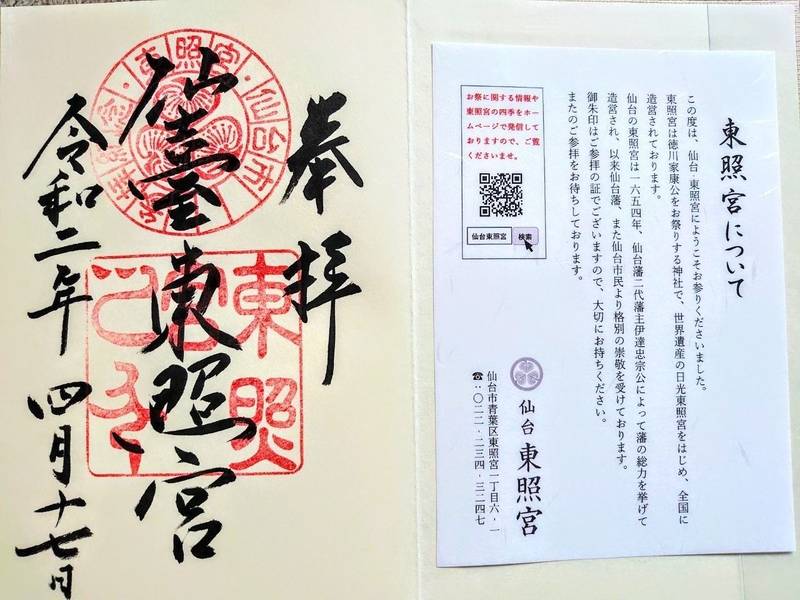 東照宮について
この度は、仙台・東照宮にようこそお参りくださいました。
東照宮は徳川家康公をお祭りする神社で、世界遺産の日光東照宮をはじめ、全国に
造営されております。
仙台の東照宮は一六五四年、仙台藩二代藩主伊達忠宗公によって藩の総力を挙げて
造営され、以来仙台藩、また仙台市民より格別の崇敬を受けております。
御朱印はご参拝の証でございますので、大切にお持ちください。
またのご参拝をお待ちしております。
お祭に関する情報や
東照宮の四季をホー
ムページで発信して
おりますので、ご覧
くださいませ。
仙台東照宮
検索
仙台 東照宮
仙台市青葉区東照宮一丁目六・一
☎:〇二二・二三四・三二四七
奉拝
仙臺東照宮
令和二年 四月十七日
東照宮
仙台市
東照